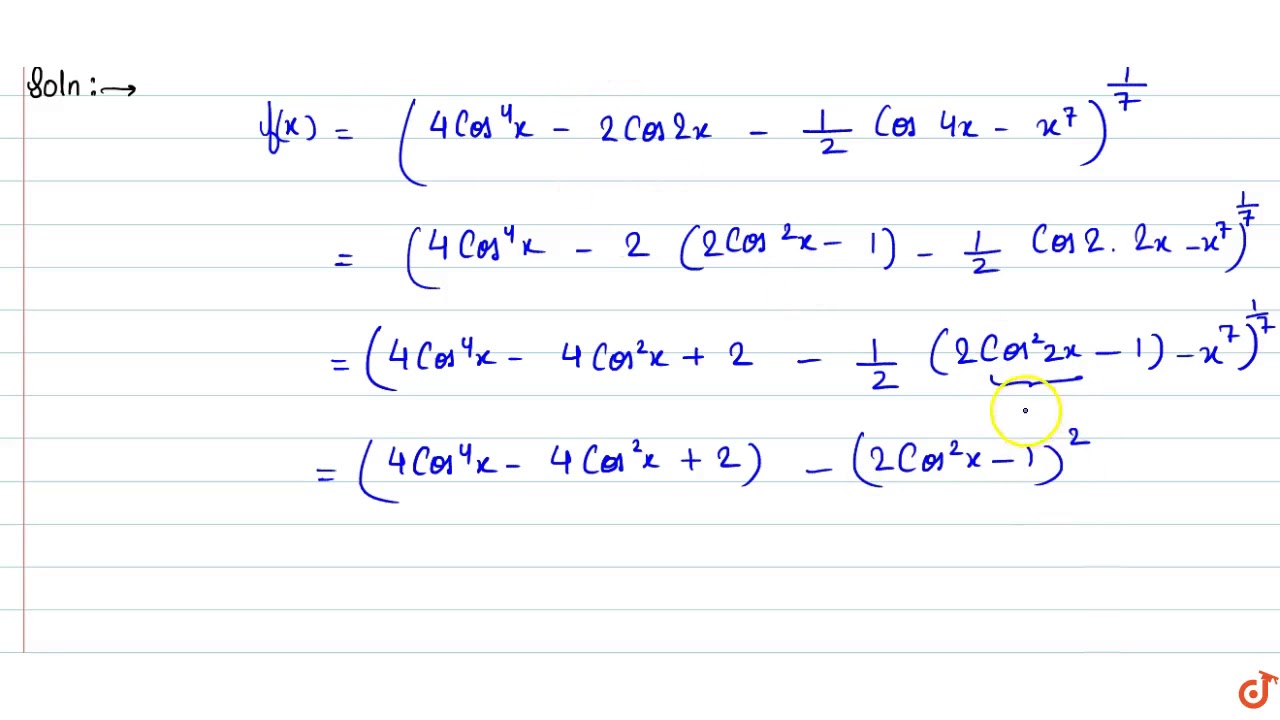 Soln :→
f(x) = (4Cos⁴x - 2Cos2x - 1/2 Cos 4x - x⁷)^1/7
= (4Cos⁴x - 2 (2Cos²x - 1) - 1/2 Cos2. 2x - x⁷)^1/7
= (4Cos⁴x - 4Cos²x + 2 - 1/2 (2Cos²2x - 1) - x⁷)^1/7
= (4Cos⁴x - 4Cos²x + 2) - (2Cos²x - 1)²